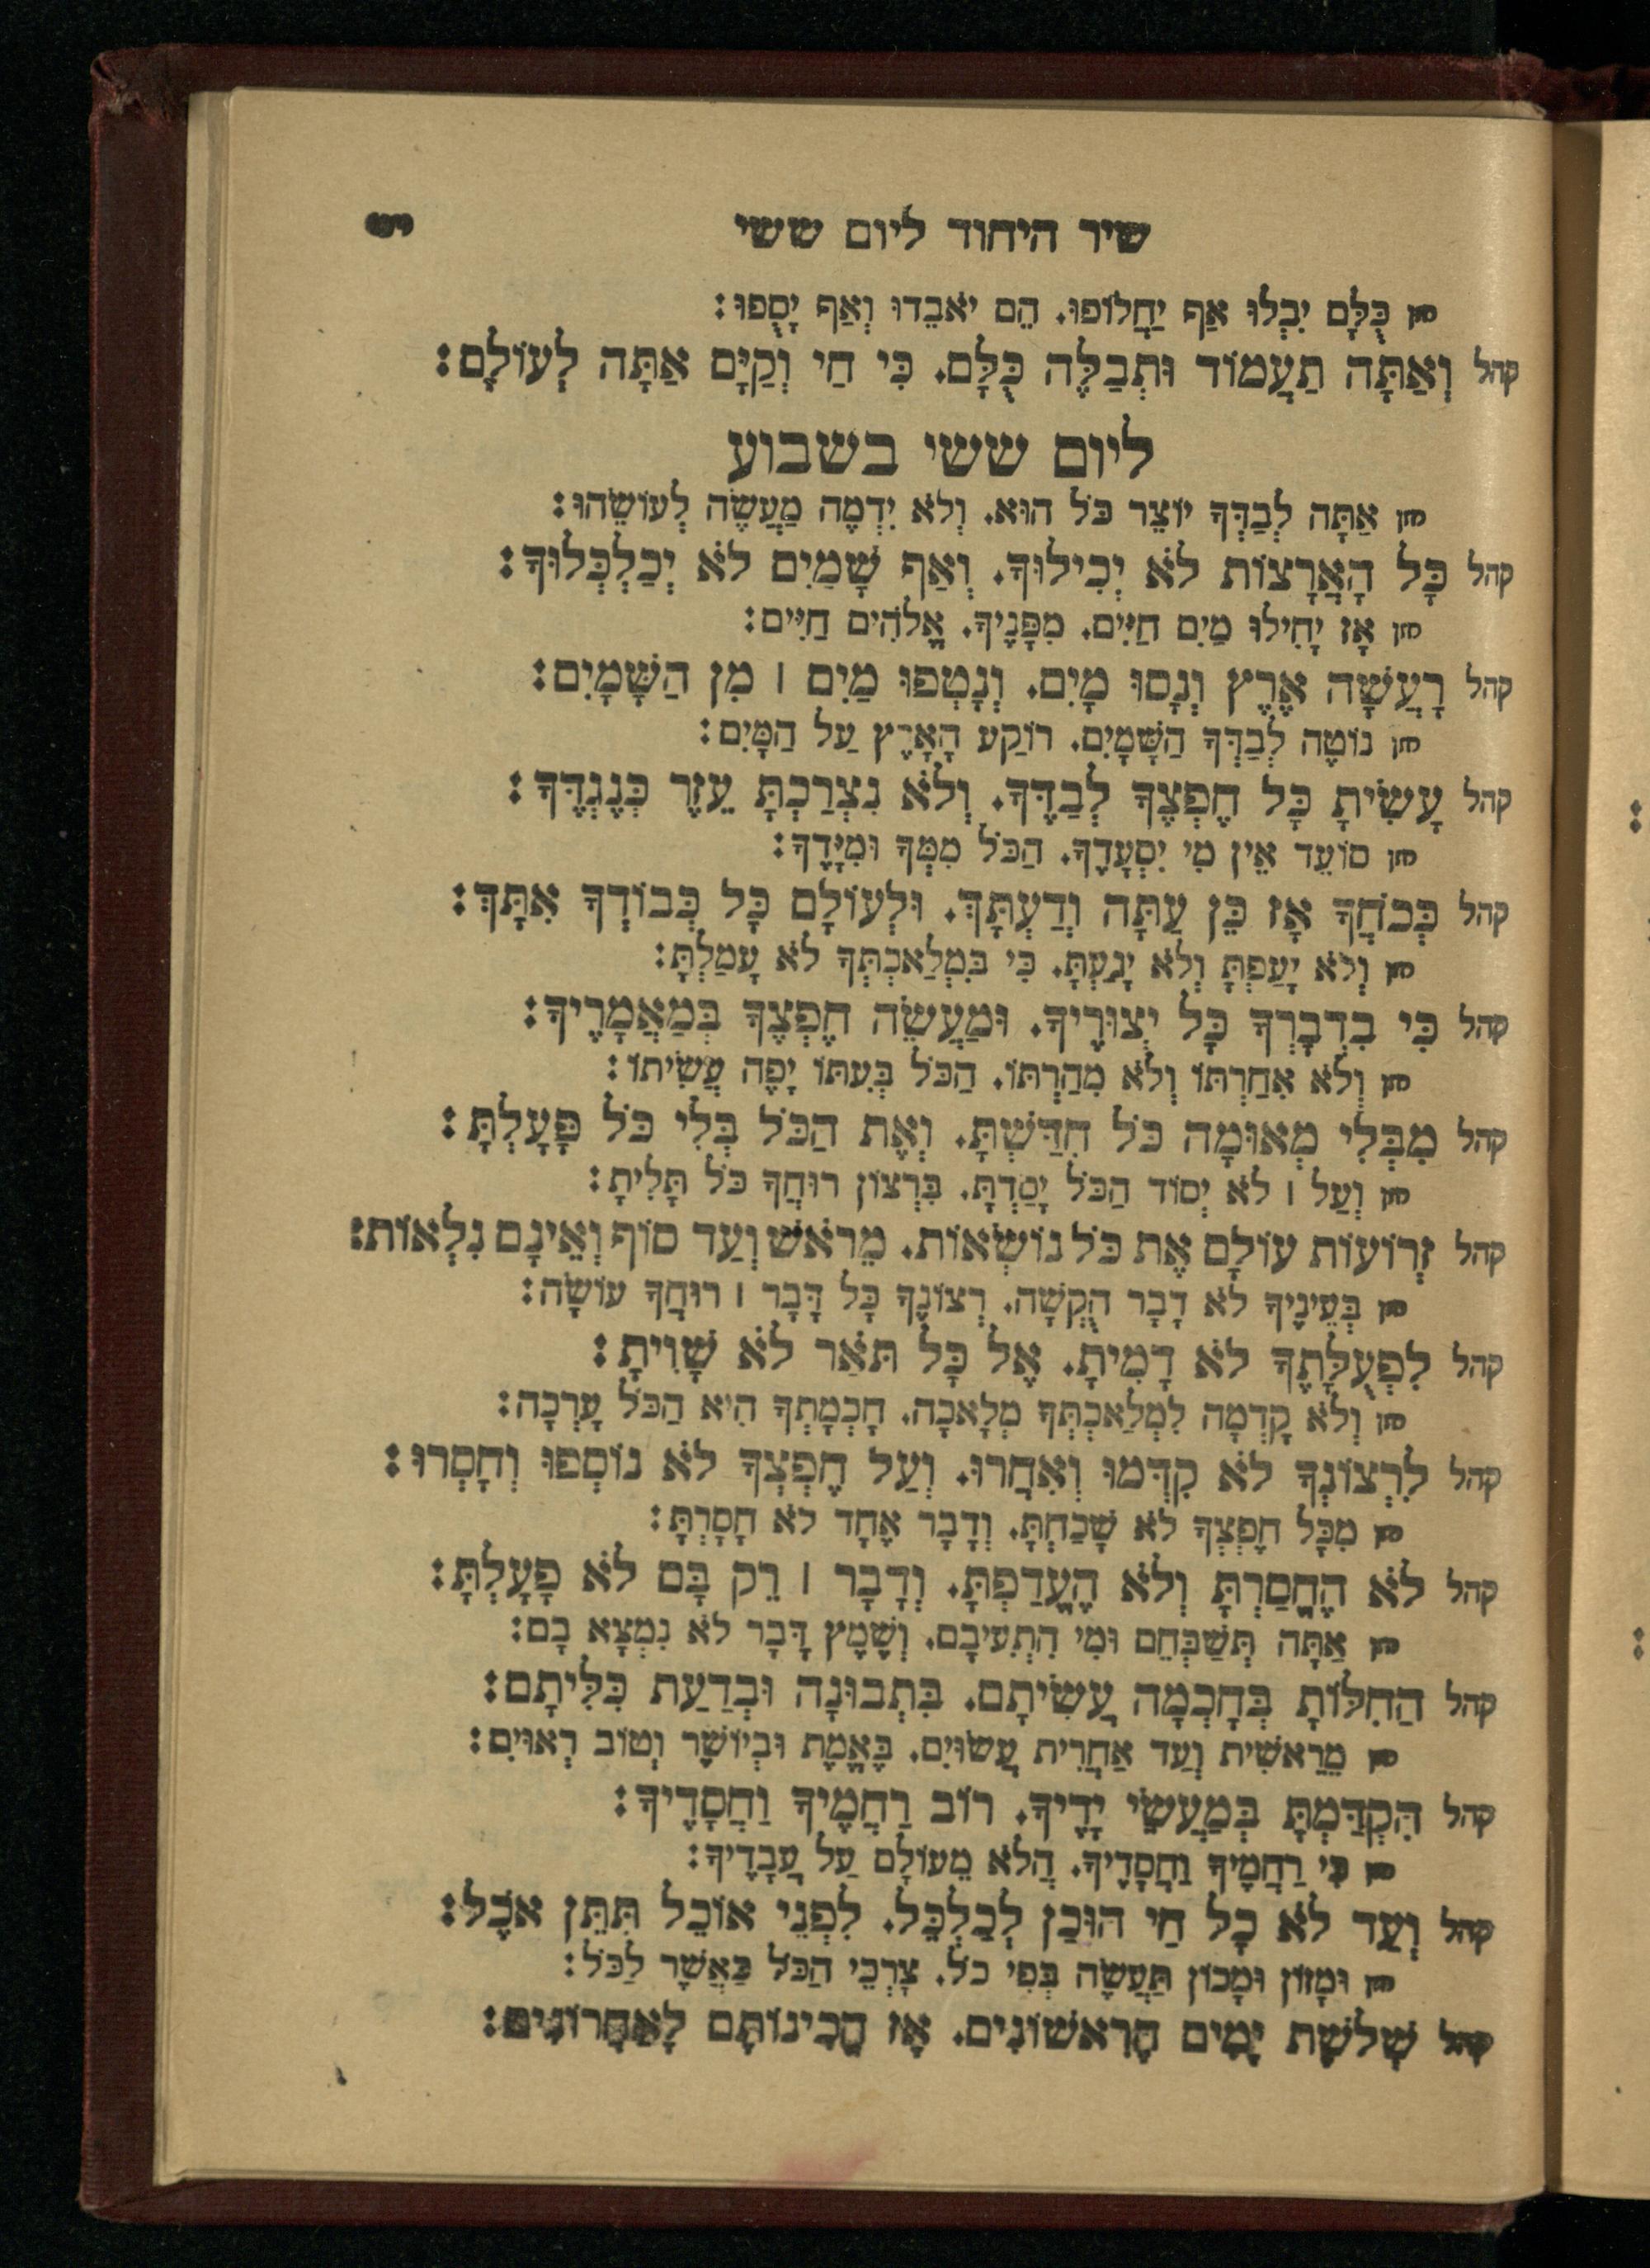 שיר היחוד ליום ששי
חזן כֻּלָּם יִבְלוּ אַף יַחֲלוֹפוּ. הֵם יֹאבֵדוּ וְאַף יָסֻפוּ:
קהל וְאַתָּה תַעֲמוֹד וּתְבַלֶּה כֻּלָּם. כִּי חַי וְקַיָּם אַתָּה לְעוֹלָם:
ליום ששי בשבוע
חזן אַתָּה לְבַדְּךָ יוֹצֵר כֹּל הוּא. וְלֹא יִדְמֶה מַעֲשֶׂה לְעוֹשֵׂהוּ:
קהל כָּל הָאֲרָצוֹת לֹא יְכִילוּךָ. וְאַף שָׁמַיִם לֹא יְכַלְכְּלוּךָ:
חזן אָז יָחִילוּ מַיִם חַיִּים. מִפָּנֶיךָ. אֱלֹהִים חַיִּים:
קהל רָעֲשָׁה אֶרֶץ וְנָסוּ מָיִם. וְנָטְפוּ מַיִם ׀ מִן הַשָּׁמָיִם:
חזן נוֹטֶה לְבַדְּךָ הַשָּׁמָיִם. רוֹקַע הָאָרֶץ עַל הַמָּיִם:
קהל עָשִׂיתָ כָּל חֶפְצְךָ לְבַדֶּךָ. וְלֹא נִצְרַכְתָּ עֵזֶר כְּנֶגְדֶּךָ:
חזן סוֹעֵד אֵין מִי יִסְעָדֶךָ. הַכֹּל מִמְּךָ וּמִיָּדֶךָ:
קהל כְּכֹחֲךָ אָז כֵּן עַתָּה וְדַעְתָּךְ. וּלְעוֹלָם כָּל כְּבוֹדְךָ אִתָּךְ:
חזן וְלֹא יָעַפְתָּ וְלֹא יָגַעְתָּ. כִּי בִּמְלַאכְתְּךָ לֹא עָמַלְתָּ:
קהל כִּי בִדְבָרְךָ כָּל יְצוּרֶיךָ. וּמַעֲשֵׂה חֶפְצְךָ בְּמַאֲמָרֶיךָ:
חזן וְלֹא אִחַרְתּוֹ וְלֹא מִהַרְתּוֹ. הַכֹּל בְּעִתּוֹ יָפֶה עֲשִׂיתוֹ:
קהל מִבְּלִי מְאוּמָה כֹּל חִדַּשְׁתָּ. וְאֶת הַכֹּל בְּלִי כֹּל פָּעָלְתָּ:
חזן וְעַל ׀ לֹא יְסוֹד הַכֹּל יָסַדְתָּ. בִּרְצוֹן רוּחֲךָ כֹּל תָּלִיתָ:
קהל זְרוֹעוֹת עוֹלָם אֶת כֹּל נוֹשְׂאוֹת. מֵרֹאשׁ וְעַד סוֹף וְאֵינָם נִלְאוֹת:
חזן בְּעֵינֶיךָ לֹא דָבָר הֻקְשָׁה. רְצוֹנְךָ כָּל דָּבָר ׀ רוּחֲךָ עוֹשָׂה:
קהל לִפְעֻלָּתֶךָ לֹא דָמִיתָ. אֶל כָּל תֹּאַר לֹא שָׁוִיתָ:
חזן וְלֹא קָדְמָה לִמְלַאכְתְּךָ מְלָאכָה. חָכְמָתְךָ הִיא הַכֹּל עָרְכָה:
קהל לִרְצוֹנְךָ לֹא קִדְּמוּ וְאִחֲרוּ. וְעַל חֶפְצְךָ לֹא נוֹסְפוּ וְחָסְרוּ:
חזן מִכָּל חֶפְצְךָ לֹא שָׁכַחְתָּ. וְדָבָר אֶחָד לֹא חָסָרְתָּ:
קהל לֹא הֶחֱסַרְתָּ וְלֹא הֶעֱדַפְתָּ. וְדָבָר ׀ רֵק בָּם לֹא פָעָלְתָּ:
חזן אַתָּה תְּשַׁבְּחֵם וּמִי הִתְעִיבָם. וְשֶׁמֶץ דָּבָר לֹא נִמְצָא בָם:
קהל הַחִלּוֹתָ בְּחָכְמָה עֲשִׂיתָם. בִּתְבוּנָה וּבְדַעַת כִּלִּיתָם:
חזן מֵרֵאשִׁית וְעַד אַחֲרִית עֲשׂוּיִם. בֶּאֱמֶת וּבְיוֹשֶׁר וְטוֹב רְאוּיִם:
קהל הִקְדַּמְתָּ בְּמַעֲשֵׂי יָדֶיךָ. רוֹב רַחֲמֶיךָ וַחֲסָדֶיךָ:
חזן כִּי רַחֲמֶיךָ וַחֲסָדֶיךָ. הֲלֹא מֵעוֹלָם עַל עֲבָדֶיךָ:
קהל וְעַד לֹא כָל חַי הוּכַן לְכַלְכֵּל. לִפְנֵי אוֹכֵל תִּתֵּן אֹכֶל:
חזן וּמָזוֹן וּמָכוֹן תַּעֲשֶׂה בְּפִי כֹל. צָרְכֵי הַכֹּל כַּאֲשֶׁר לַכֹּל:
קהל שְׁלֹשֶׁת יָמִים הָרִאשׁוֹנִים. אָז הֲכִינוֹתָם לָאַחֲרוֹנִים: